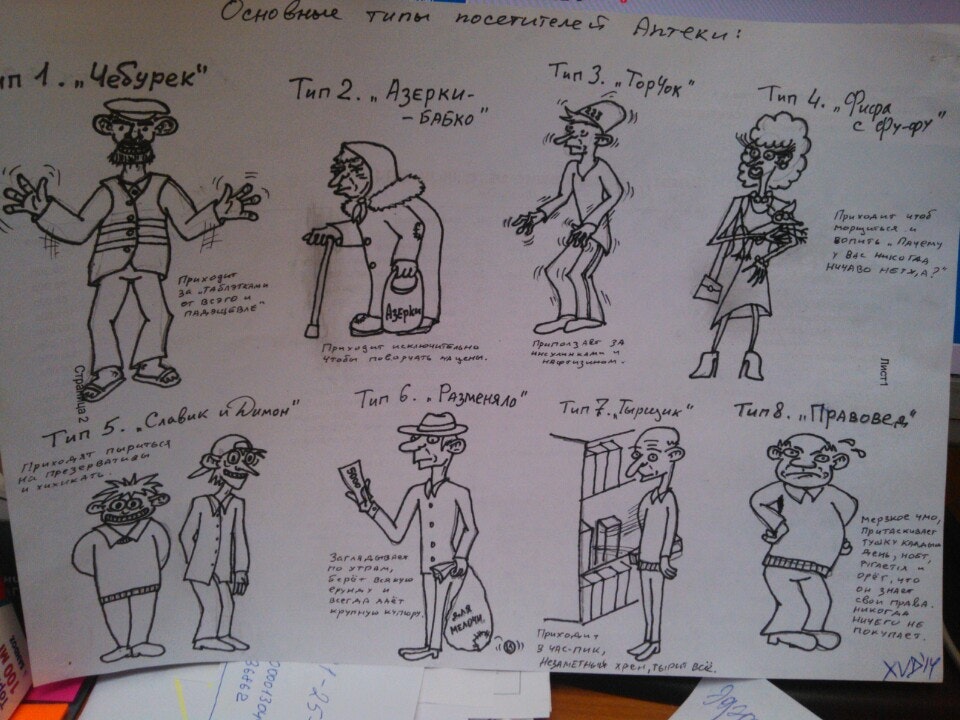 Основные типы посетителей Аптеки:
Тип 1. „Чебурек"
Приходит
за „таблэтками
от всэго и
падэшевле"
Тип 2. „Азерки-
-бабко"
Азерки
Приходит исключительно
чтобы поворчать на цены.
Тип 3. „Торчок"
Приползает за
инсулинками и
нафтизином.
Тип 4. „Фифа
с фу-фу"
Приходит чтоб
морщиться и
вопить „Пачему
у вас никогда
ничаво нетх,а?"
Лист1
Страница 2
Тип 5. „Славик и Димон"
Приходят пыриться
на презервативы
и хихикать.
Тип 6. „Разменяло"
5000
Заглядывает
по утрам,
берёт всякую
ерунду и
всегда даёт
крупную купюру.
для
мелочи
Тип 7. „Тырщик"
Приходит
в час-пик,
незаметный хрен, тырит всё.
Тип 8. „Правовед"
Мерзкое чмо,
притаскивает
тушку каждый
день, ноет,
ругается и
орёт, что
он знает
свои права.
Никогда
ничего не
покупает.
XVD'14